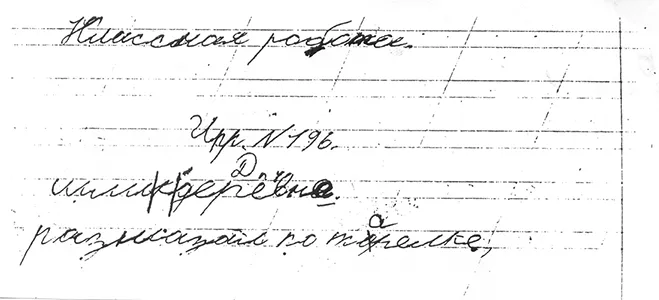 Классная работа.
Упр. N 196.
шли к деревне.
размазал по тарелке,